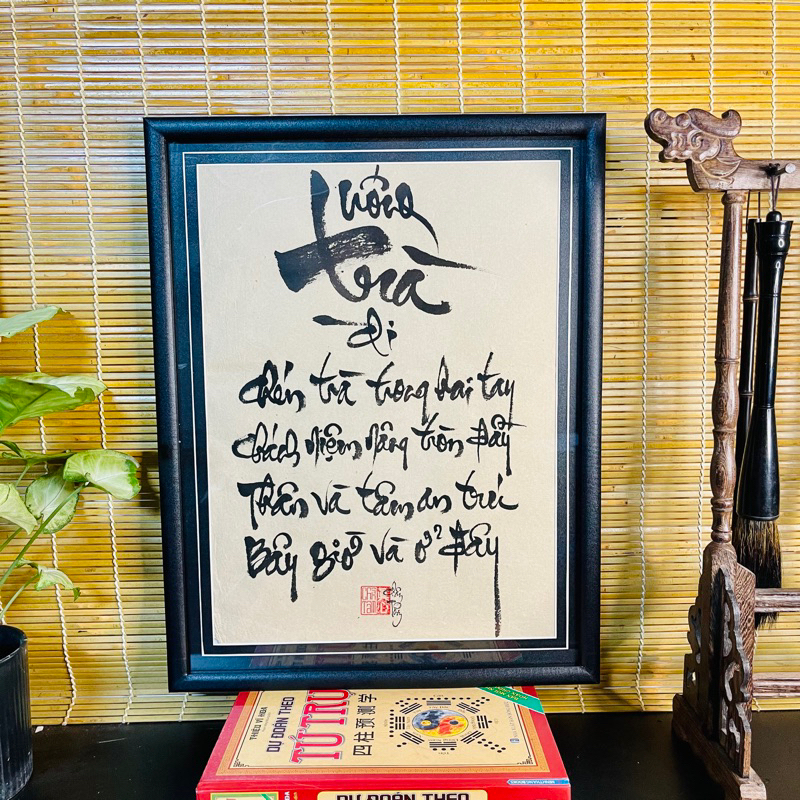 Uống
trà
đi
Chén trà trong hai tay
Chánh niệm nâng tròn đầy
Thân và tâm an trú
Bây giờ và ở đây
THIỆU VĨ HOA
DỰ ĐOÁN THEO
TỨ TRỤ
四柱预测学
DỰ ĐOÁN THEO